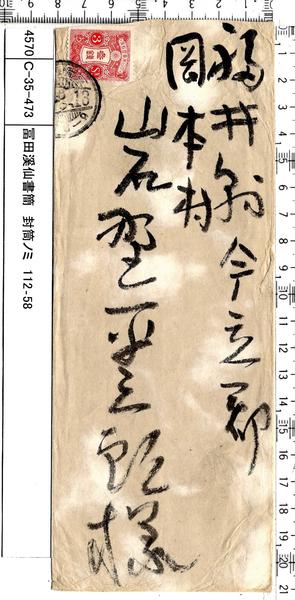 福井縣今立郡
岡本村
岩野平三郎様
4570 C-35-473 冨田溪仙書簡 封筒ノミ 112-58